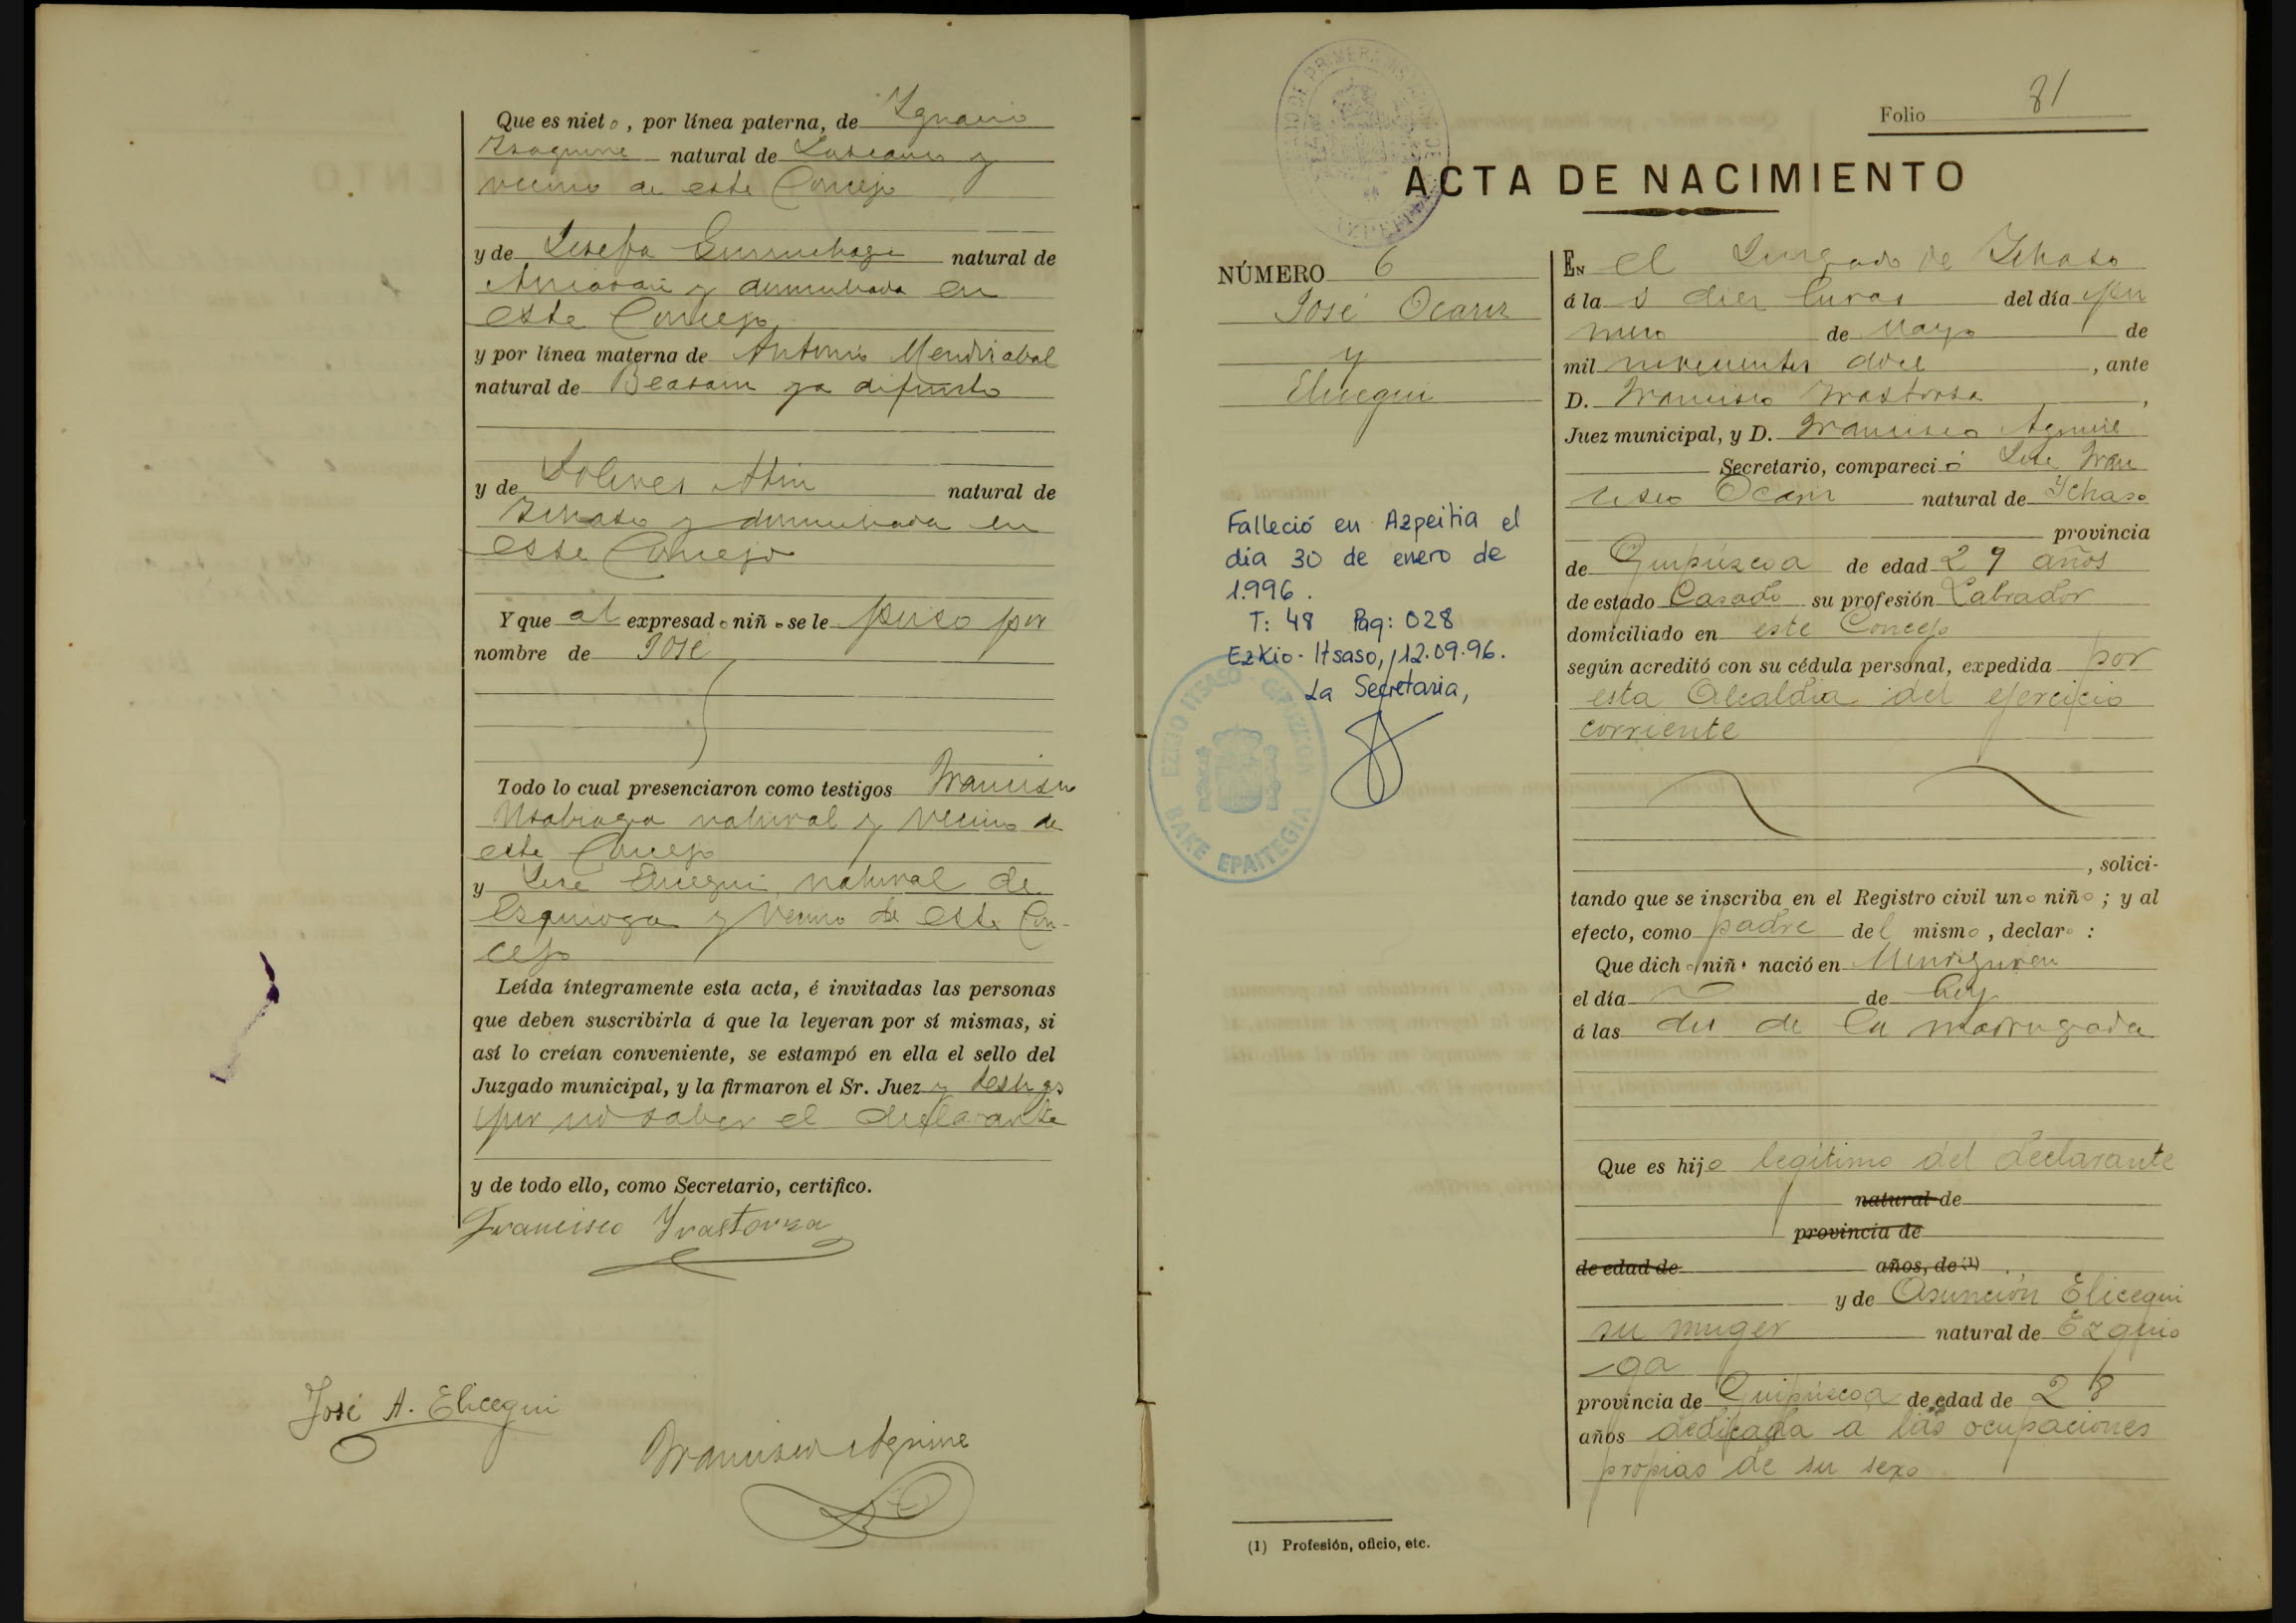 Que es nieto, por línea paterna, de Ignacio
natural de Lascano y
vecino de este Concejo
y de Josefa Gurruchaga natural de
Arriaran y domiciliada en
este Concejo
y por línea materna de Antonio Mendizabal
natural de Beasain ya difunto
y de Dolores natural de
Ichaso y domiciliada en
este Concejo
Y que al expresado niño se le puso por
nombre de José
Todo lo cual presenciaron como testigos Francisco
Usabiaga natural y vecino de
este Concejo
y José Elicegui natural de
Esquioga y vecino de este Con-
cejo
Leída íntegramente esta acta, é invitadas las personas
que deben suscribirla á que la leyeran por sí mismas, si
así lo creían conveniente, se estampó en ella el sello del
Juzgado municipal, y la firmaron el Sr. Juez y testigos
por no saber el declarante
y de todo ello, como Secretario, certifico.
Francisco Yrastorza
José A. Elicegui
Francisco Aguirre
Folio 81
ACTA DE NACIMIENTO
NÚMERO 6
José Ocariz
y
Elicegui
Falleció en Azpeitia el
día 30 de enero de
1.996.
T: 48 Pag: 028
Ezkio-Itsaso, 12.09.96.
La Secretaria,
EZKIO ITSASO GIPUZKOA
BAKE EPAITEGIA
En el Juzgado de Ichaso
á las diez horas del día pri
mero de Mayo de
mil novecientos doce, ante
D. Francisco Irastorza,
Juez municipal, y D. Francisco Aguirre
Secretario, compareció José Fran
cisco Ocariz natural de Ichaso
provincia
de Guipúzcoa de edad 29 años
de estado Casado su profesión Labrador
domiciliado en este Concejo
según acreditó con su cédula personal, expedida por
esta Alcaldia del ejercicio
corriente
, solici-
tando que se inscriba en el Registro civil uno niño; y al
efecto, como padre del mismo, declaro:
Que dicho niño nació en
el día de hoy
á las dos de la madrugada
Que es hijo legitimo del declarante
natural de
provincia de
de edad de años, de (1)
y de Asunción Elicegui
su muger natural de Ezquio
ga
provincia de Guipúzcoa de edad de 28
años dedicada a las ocupaciones
propias de su sexo
(1) Profesión, oficio, etc.